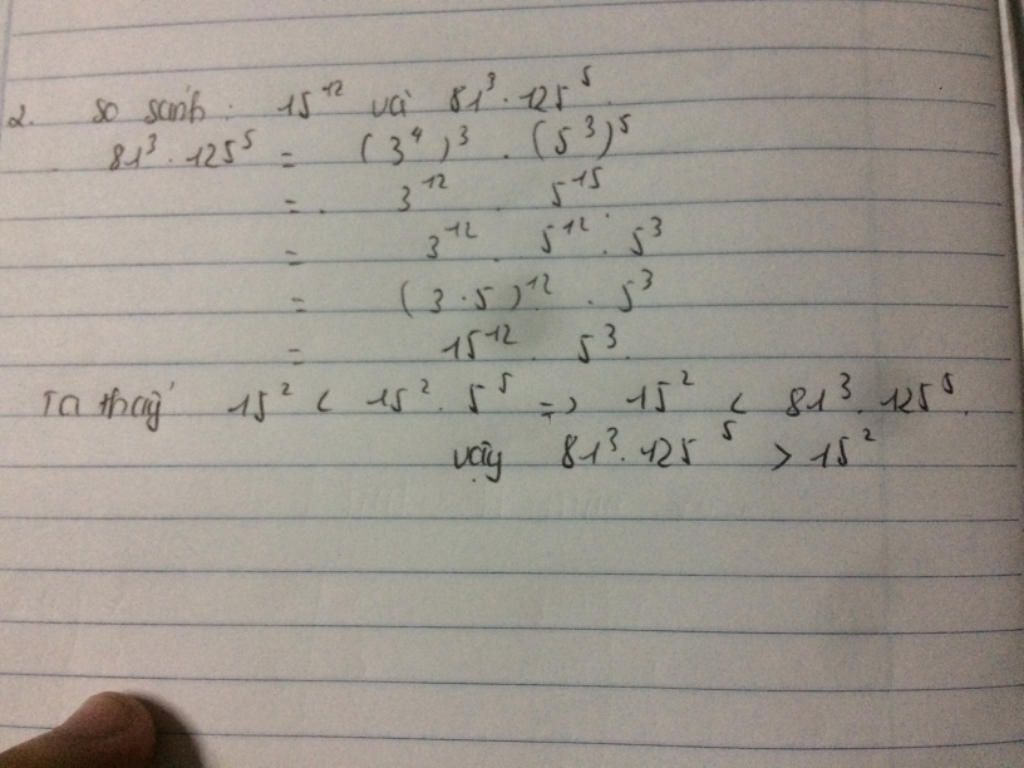 2. So sánh: 15^12 và 81^3 . 125^5
81^3 . 125^5 = (3^4)^3 . (5^3)^5
= 3^12 . 5^15
= 3^12 . 5^12 . 5^3
= (3 . 5)^12 . 5^3
= 15^12 . 5^3.
Ta thấy 15^2 < 15^2 . 5^5 => 15^2 < 81^3 . 125^5.
vậy 81^3 . 125^5 > 15^2